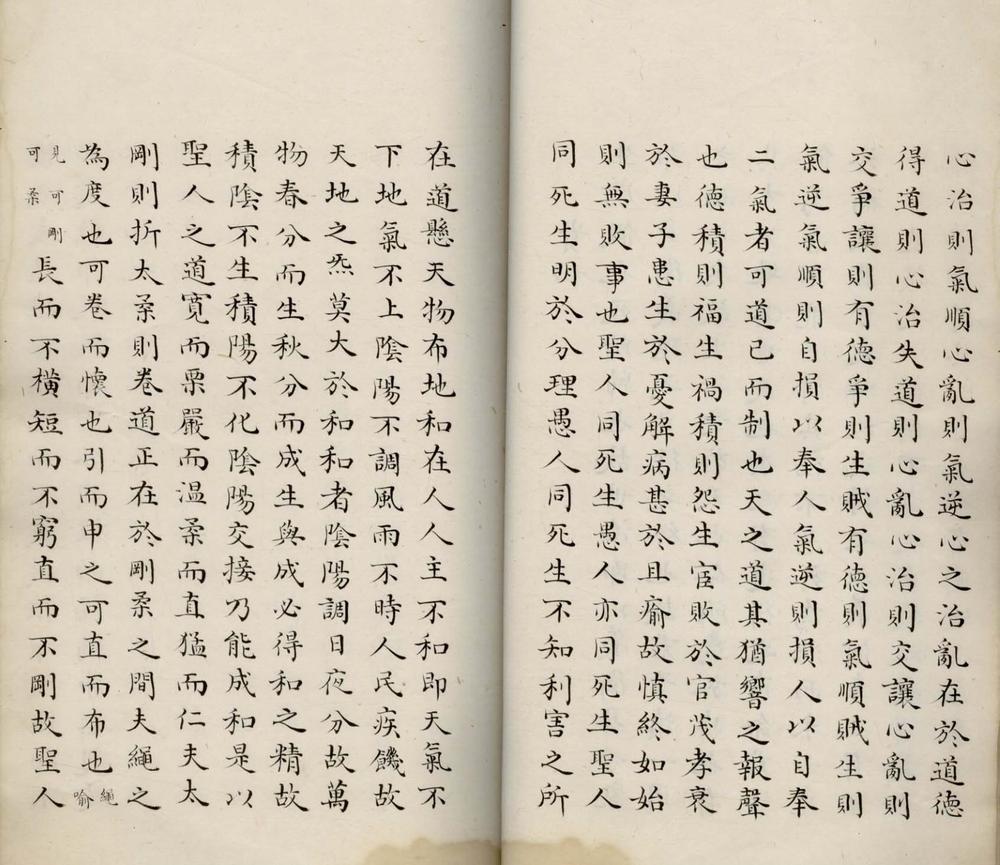 心治則氣順心亂則氣逆心之治亂在於道德
得道則心治失道則心亂心治則交讓心亂則
交爭讓則有德爭則生賊有德則氣順賊生則
氣逆氣順則自損以奉人氣逆則損人以自奉
二氣者可道已而制也天之道其猶響之報聲
也德積則福生禍積則怨生宦敗於官茂孝衰
於妻子患生於憂解病甚於且瘉故慎終如始
則無敗事也聖人同死生愚人亦同死生聖人
同死生明於分理愚人同死生不知利害之所
在道懸天物布地和在人人主不和即天氣不
下地氣不上陰陽不調風雨不時人民疾饑故
天地之炁莫大於和和者陰陽調日夜分故萬
物春分而生秋分而成生與成必得和之精故
積陰不生積陽不化陰陽交接乃能成和是以
聖人之道寬而栗嚴而温柔而直猛而仁夫太
剛則折太柔則卷道正在於剛柔之間夫繩之
為度也可卷而懷也引而申之可直而布也繩喻
見可剛可柔長而不橫短而不窮直而不剛故聖人